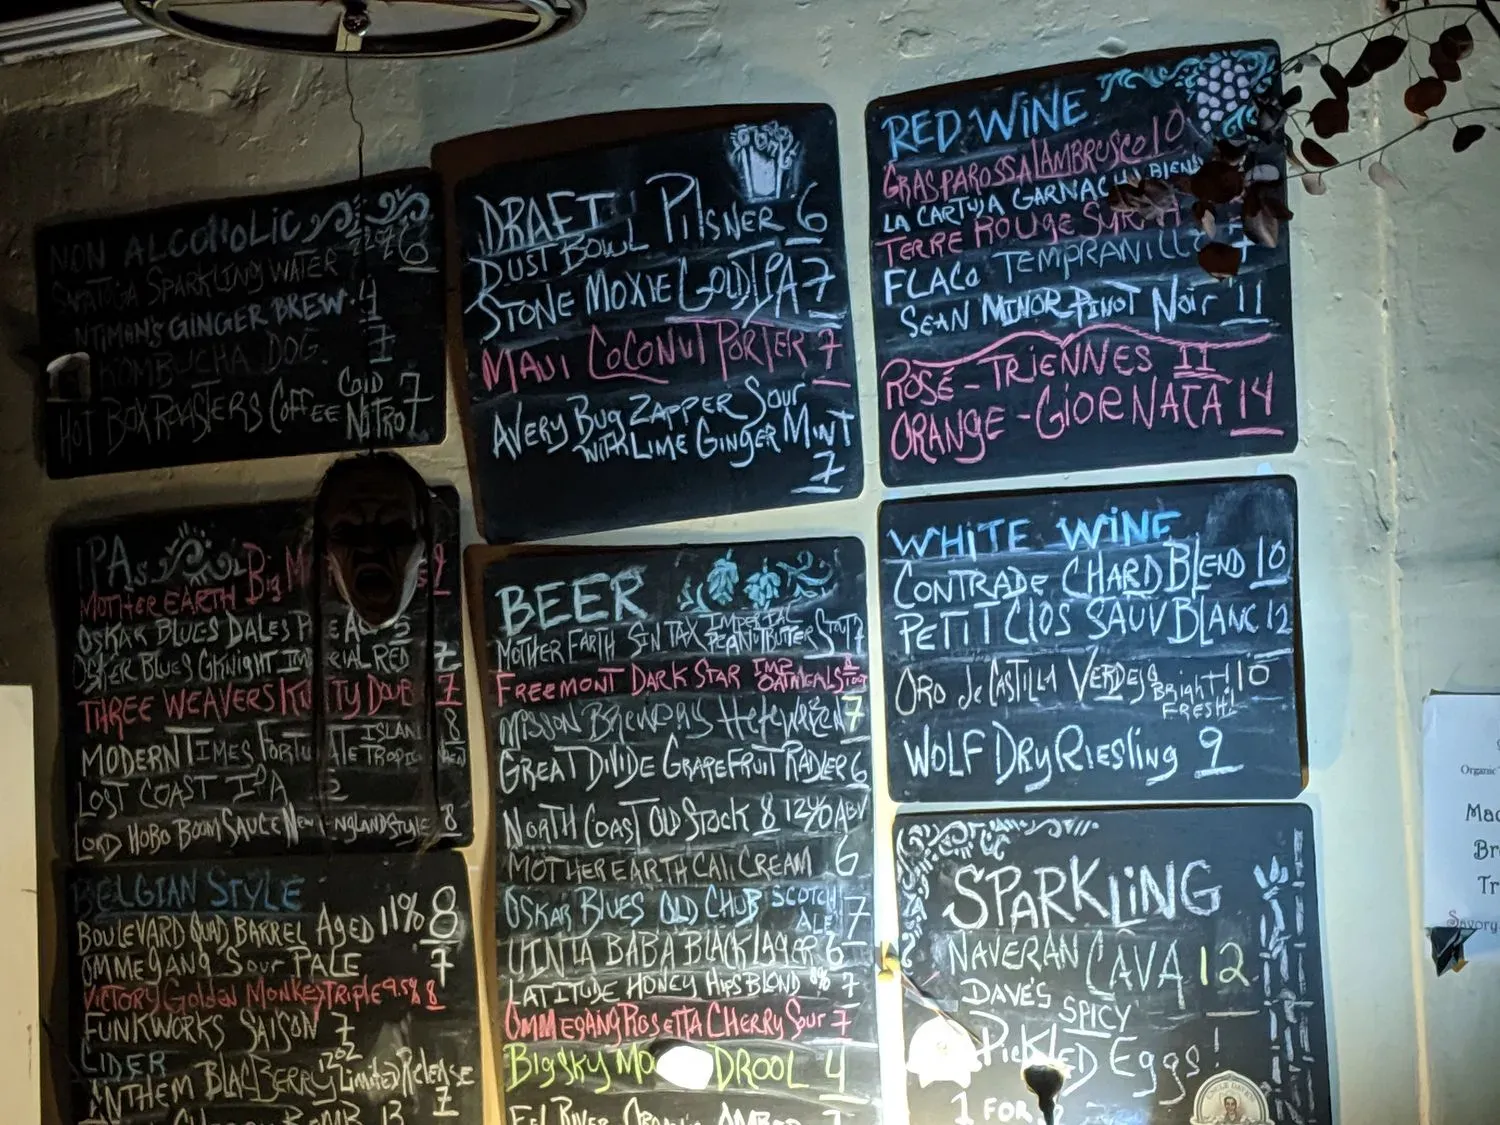 NON ALCOHOLIC
SARATOGA SPARKLING WATER 6
NTIMAN'S GINGER BREW 4
KOMBUCHA DOG 7
HOT BOX ROASTERS COFFEE COLD NITRO 7
DRAFT PILSNER 6
DUST BOWL
STONE MOXIE GOLD IPA 7
MAUI COCONUT PORTER 7
AVERY BUG ZAPPER SOUR
WITH LIME GINGER MINT
7
RED WINE
GRASPAROSSA LAMBRUSCO 10
LA CARTUJA GARNACHA BLEND
TERRE ROUGE SYRAH
FLACO TEMPRANILLO
SEAN MINOR PINOT NOIR 11
ROSÉ - TRIENNES 11
ORANGE - GIORNATA 14
IPAs
MOTHER EARTH BIG M 9
OSKAR BLUES DALES P E A 5
OSKER BLUES GKNIGHT IM RIAL RED 7
THREE WEAVERS KN TY DOUB 7
MODERN TIMES FORTU ATE ISLAND TROPIC 8
LOST COAST IPA 5
LORD HOBO BOOMSAUCE NEW ENGLAND STYLE 8
BEER
MOTHER EARTH SIN TAX IMPERIAL PEANUTBUTTER STOUT 7
FREEMONT DARK STAR IMP OATMEAL STOUT 8
MISSION BREWERY HEFEWEIZEN 7
GREAT DIVIDE GRAPEFRUIT RADLER 6
NORTH COAST OLD STOCK 8 12% ABV
MOTHER EARTH CALI CREAM 6
OSKAR BLUES OLD CHUB SCOTCH ALE 7
UINTA BABA BLACK LAGER 6
LATITUDE HONEY HIPS BLOND 8% 7
OMMEGANG ROSETTA CHERRY SOUR 7
BIG SKY MO DROOL 4
EEL RIVER ORGANIC AMBER 7
WHITE WINE
CONTRADE CHARD BLEND 10
PETIT CLOS SAUV BLANC 12
ORO de CASTILLA VERDEJO Bright! FRESH! 10
WOLF DRY RIESLING 9
BELGIAN STYLE
BOULEVARD QUAD BARREL AGED 11% 8
OMMEGANG SOUR PALE 7
VICTORY GOLDEN MONKEY TRIPLE 9.5% 8
FUNKWORKS SAISON 7
CIDER
ANTHEM BLACBERRY 12OZ LIMITED RELEASE 7
13
SPARKLING
NAVERAN CAVA 12
DAVE'S SPICY
PICKLED EGGS!
1 FOR 2
Organic
Mad
Br
Tr
Savory